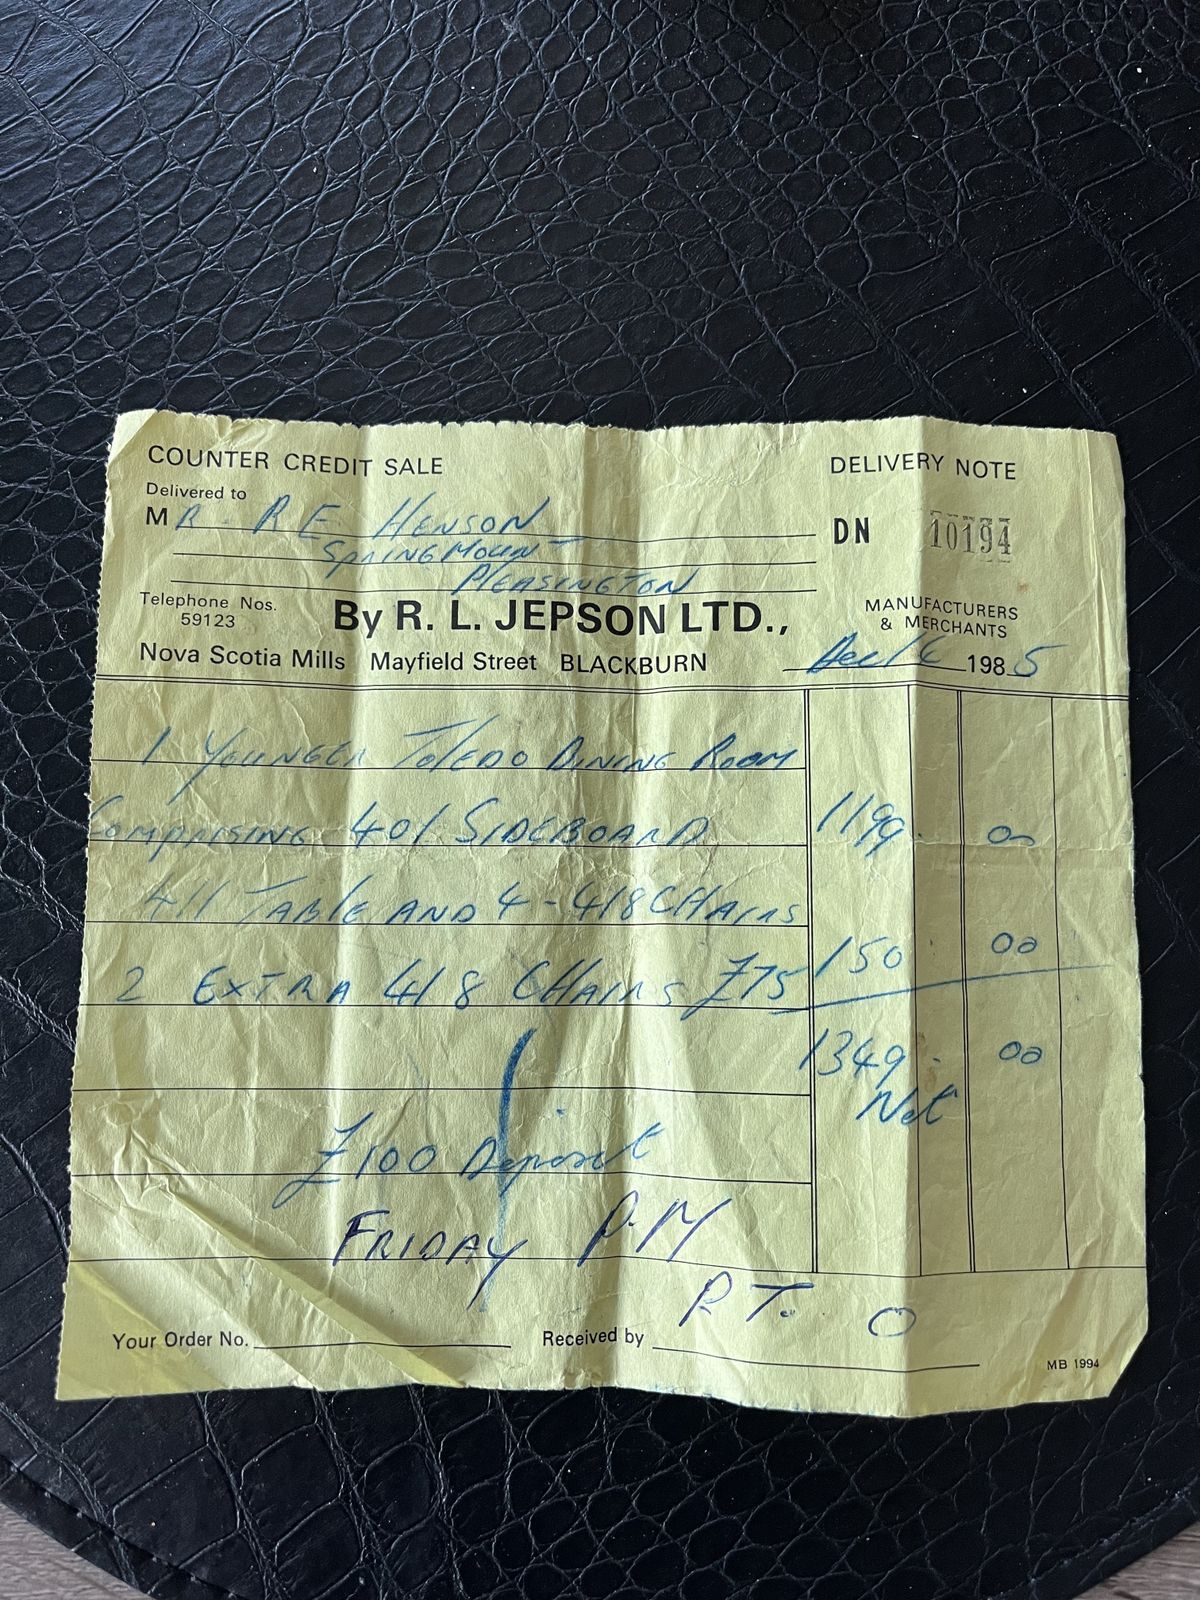 COUNTER CREDIT SALE
DELIVERY NOTE
Delivered to
MR. R E HENSON
SPRING MOUNT
PLEASINGTON
DN 10194
Telephone Nos.
59123
By R. L. JEPSON LTD.,
MANUFACTURERS
& MERCHANTS
Nova Scotia Mills Mayfield Street BLACKBURN
Dec 1985
1 YOUNGER TOLEDO DINING ROOM
COMPRISING 401 SIDEBOARD 1199. 00
411 TABLE AND 4 - 418 CHAIRS
2 EXTRA 418 CHAIRS £75 150 00
1349. 00
Net
£100 Deposit
FRIDAY P.M
P.T.O
Your Order No.
Received by
MB 1994